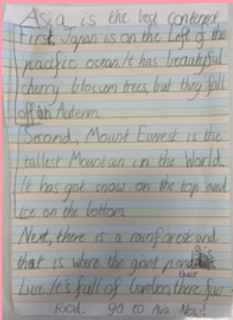 Asia, is the best contenent
First, Japan is on the left of the
pacific ocean. It has beautyful
cherry blossom trees, but they fall
off in Autumn.
Second, Mount Everest is the
tallest Mountain in the World.
It has got snow on the top and
ice on the bottom.
Next, there is a rainforest and
that is where the giant pandas
Live. It's full of bamboo, there
their
food. go to Asia Now!